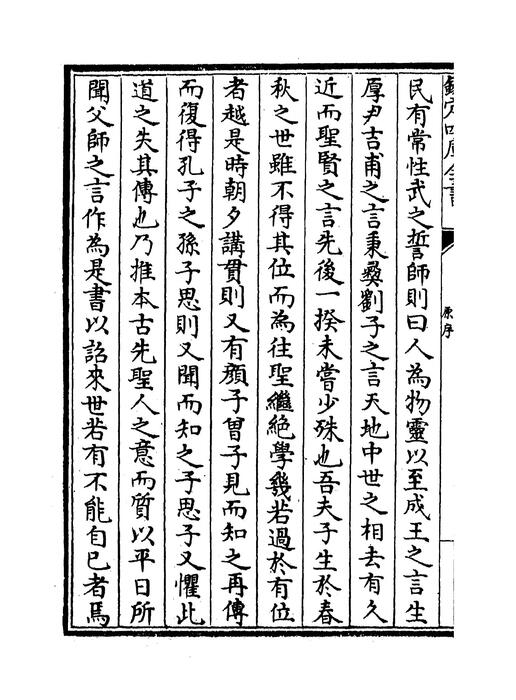 欽定四庫全書
原序
民有常性武之誓師則曰人為物靈以至成王之言生
厚尹吉甫之言秉彜劉子之言天地中世之相去有久
近而聖賢之言先後一揆未嘗少殊也吾夫子生於春
秋之世雖不得其位而為往聖繼絶學幾若過於有位
者越是時朝夕講貫則又有顔子曾子見而知之再傳
而復得孔子之孫子思則又聞而知之子思子又懼此
道之失其傳也乃推本古先聖人之意而質以平日所
聞父師之言作為是書以詔來世若有不能自已者焉